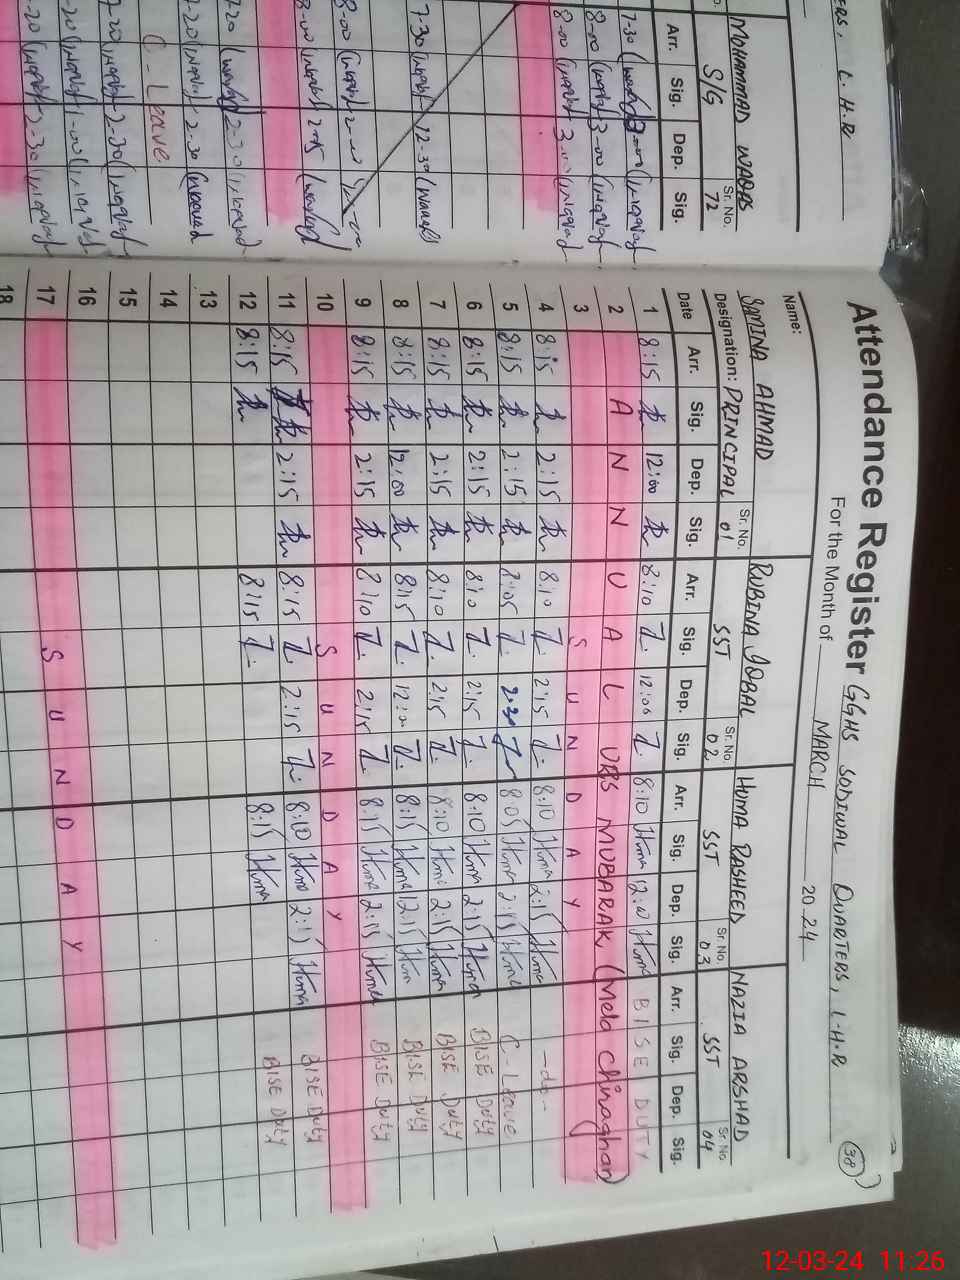 Attendance Register GGHS SODIWAL QUARTERS, L.H.R
38
For the Month of MARCH 2024
Name: SAMINA AHMAD RUBINA IQBAL HUMA RASHEED NAZIA ARSHAD
Designation: PRINCIPAL Sr. No. 01 SST Sr. No. 02 SST Sr. No. 03 SST Sr. No. 04
Date Arr. Sig. Dep. Sig. Arr. Sig. Dep. Sig. Arr. Sig. Dep. Sig. Arr. Sig. Dep. Sig.
1 8:15 12:00 8:10 12:00 8:10 Huma 12:00 Huma BISE DUTY
2 ANNUAL URS MUBARAK (Mela Chiraghan)
3 SUNDAY
4 8:15 2:15 8:10 2:15 8:10 Huma 2:15 Huma -do-
5 8:15 2:15 8:05 2:30 8:05 Huma 2:15 Huma C-Leave
6 8:15 2:15 8:10 2:15 8:10 Huma 2:15 Huma BISE DUTY
7 8:15 2:15 8:10 2:15 8:10 Huma 2:15 Huma BISE DUTY
8 8:15 12:00 8:15 12:00 8:15 Huma 12:15 Huma BISE DUTY
9 8:15 2:15 8:10 2:15 8:15 Huma 2:15 Huma BISE DUTY
10 SUNDAY
11 8:15 2:15 8:15 2:15 8:10 Huma 2:15 Huma BISE DUTY
12 8:15 8:15 8:15 Huma BISE DUTY
13
14
15
16
17 SUNDAY
18
TERS, L.H.R
MOHAMMAD WAQAS
S/G Sr. No. 72
Arr. Sig. Dep. Sig.
7-30 3-00
8-00 3-00
8-00 3-00
7-30 12-30
8-00 2-00
8-00 2-15
7-20 2-30
7-20 2-30
C-Leave
7-20 2-30
-20 1-00
-20 2-30
12-03-24 11:26